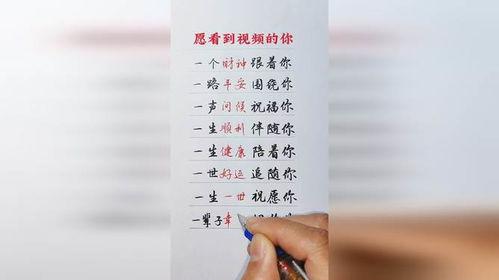 愿看到视频的你
一个财神跟着你
一路平安围绕你
一声问候祝福你
一生顺利伴随你
一生健康陪着你
一世好运追随你
一生一世祝愿你
一辈子幸